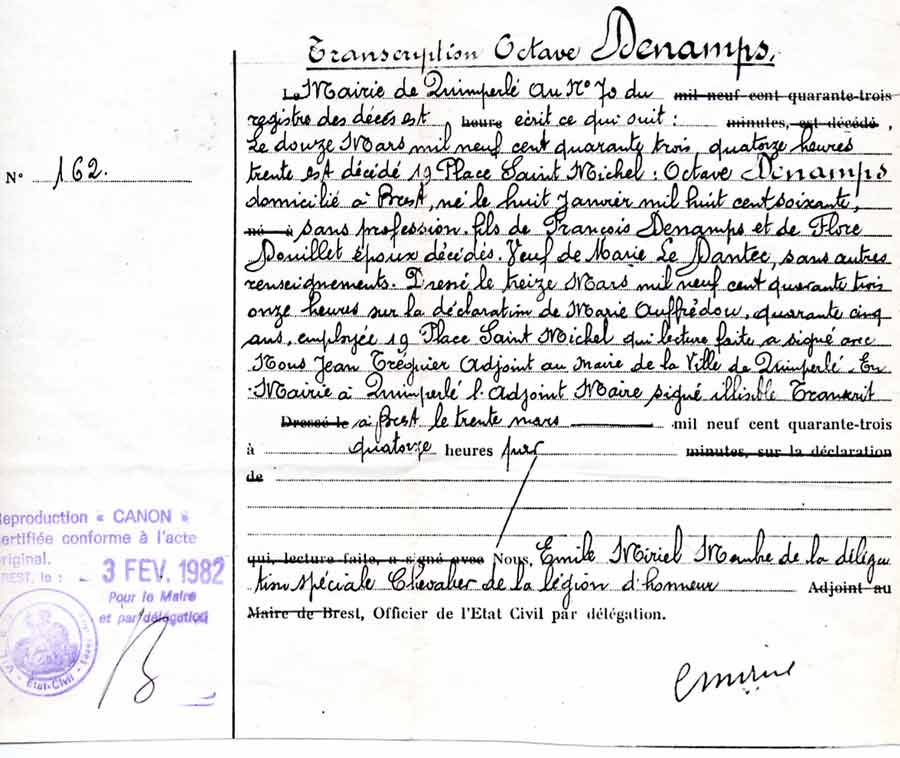 Transcription Octave Denamps.
N° 162.
La Mairie de Quimperlé au N° 70 du mil neuf cent quarante-trois
registre des décès est heure écrit ce qui suit : minutes, est décédé ,
Le douze Mars mil neuf cent quarante trois quatorze heures
trente est décédé 19 Place Saint Michel : Octave Denamps
domicilié à Brest, né le huit Janvier mil huit cent soixante,
né à sans profession. fils de François Denamps et de Flore
Douillet époux décédés. Veuf de Marie Le Dantec, sans autres
renseignements. Dressé le treize Mars mil neuf cent quarante trois
onze heures sur la déclaration de Marie Auffrédou, quarante cinq
ans, employée 19 Place Saint Michel qui lecture faite a signé avec
Nous Jean Tréguier Adjoint au Maire de la Ville de Quimperlé. En
Mairie à Quimperlé l'Adjoint Maire signé illisible Transcrit
Dressé le à Brest le trente mars mil neuf cent quarante-trois
à quatorze heures par minutes, sur la déclaration
de
qui, lecture faite, a signé avec Nous, Emile Miriel Membre de la déléga
tion spéciale Chevalier de la légion d'honneur Adjoint au
Maire de Brest, Officier de l'Etat Civil par délégation.
Reproduction « CANON »
certifiée conforme à l'acte
original.
BREST, le : - 3 FEV. 1982
Pour le Maire
et par délégation
Etat-Civil